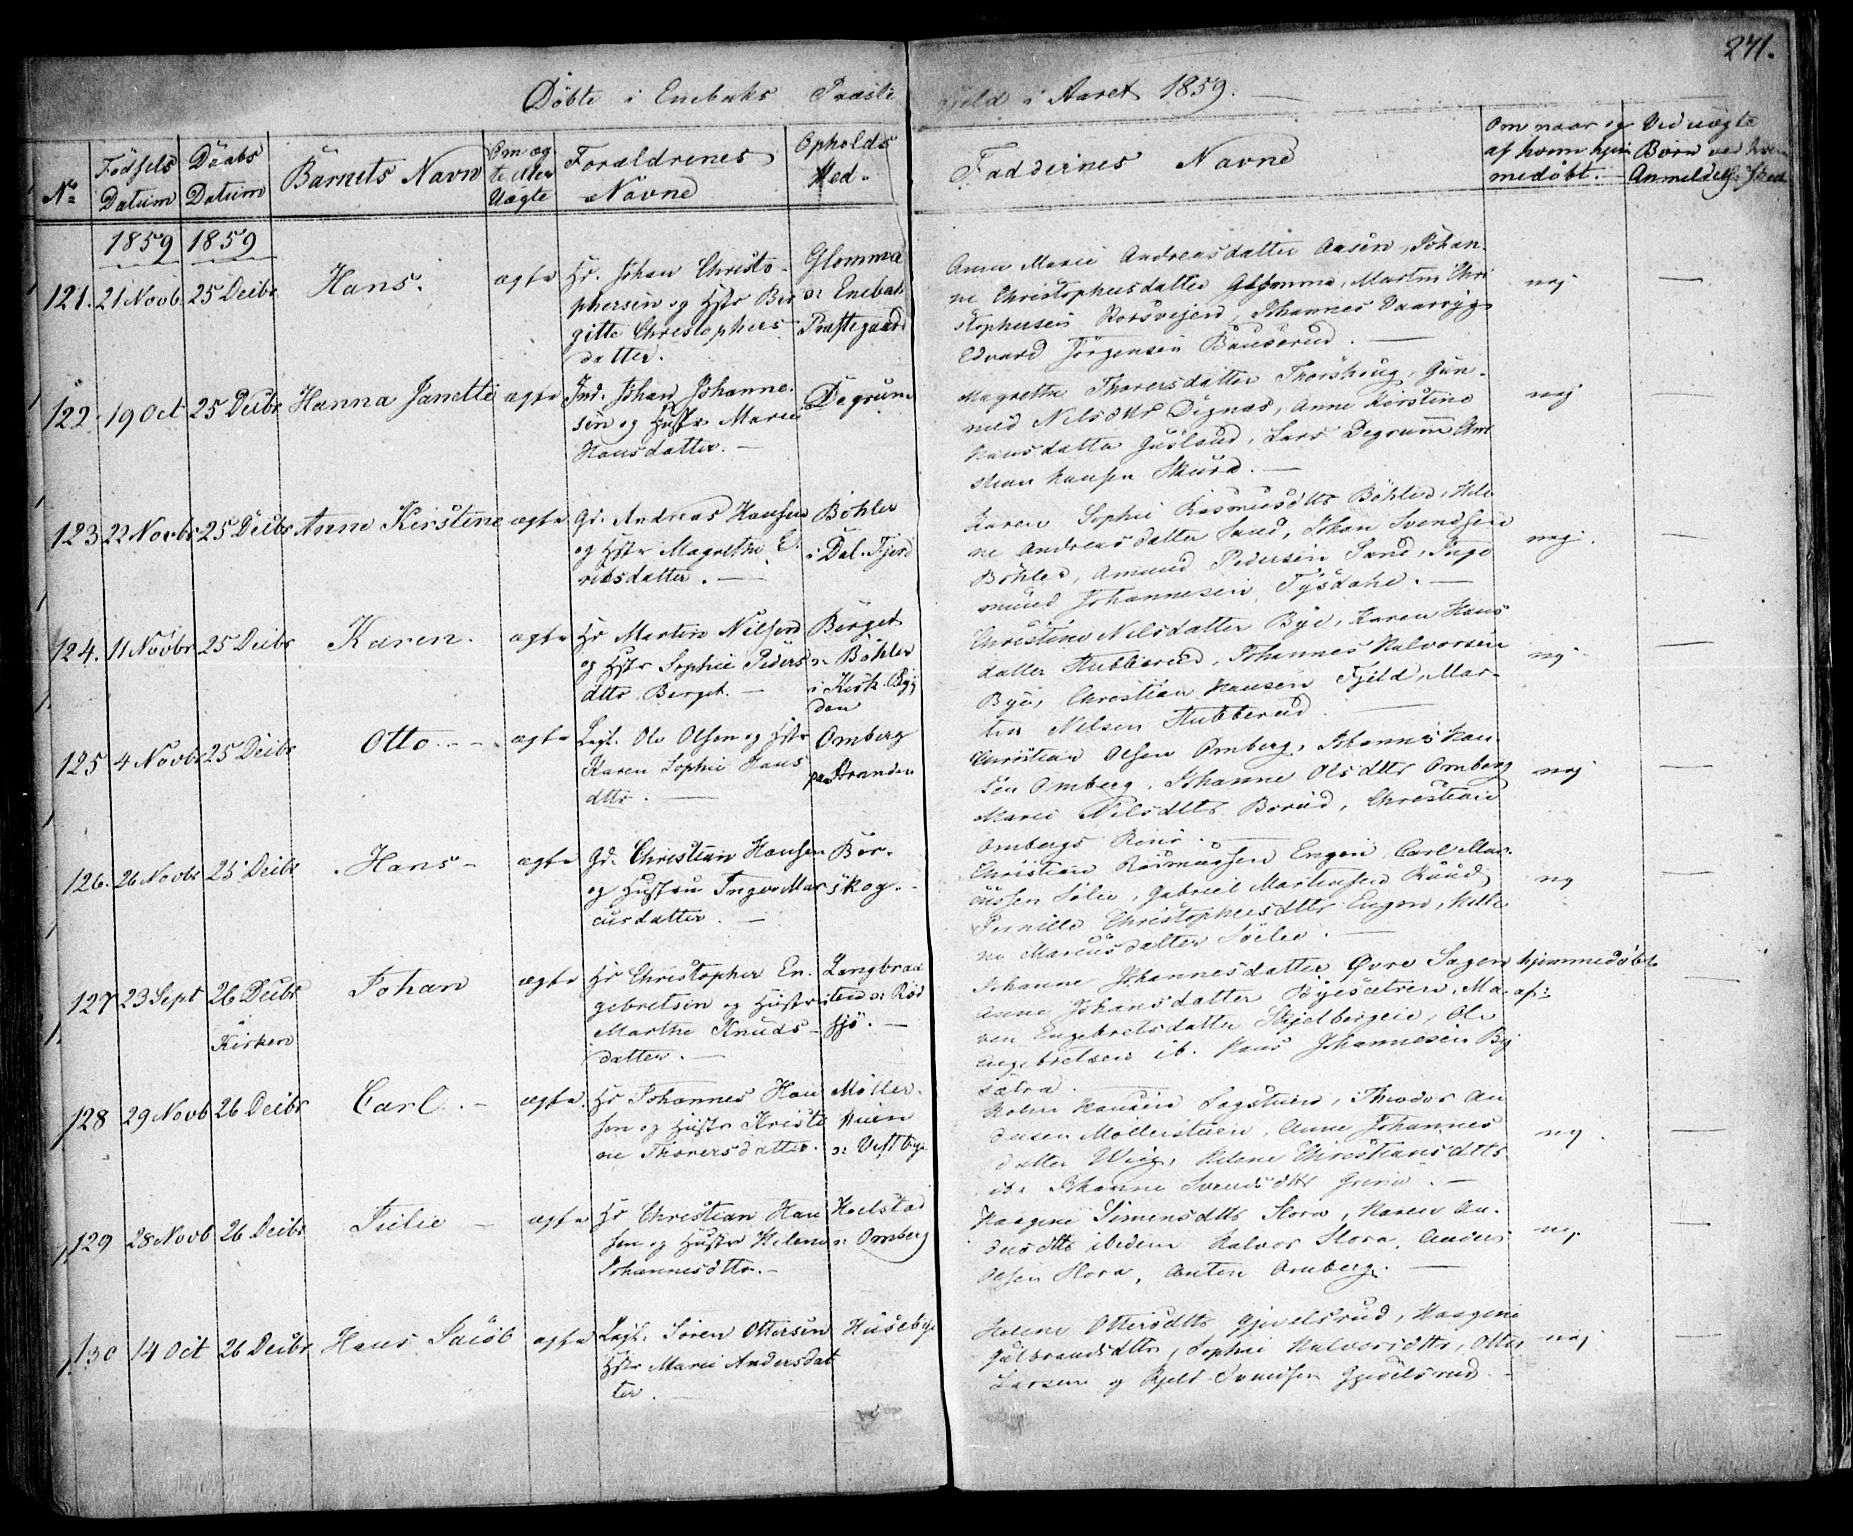 271.
Döbte i Enebaks Præste gjeld i Aaret 1859.
No
Födsels Datum
Daabs Datum
Barnets Navn
Om ægte eller Uægte
Forældrenes Navne
Opholds Sted.
Faddernes Navne
Om naar og af hvem hjemmedøbt.
Ved uægte Børn
1859 1859
121. 21 Novb 25 Decbr Hans. ægte
Hr. Johan Christo-
phersen og Hstr Ber
gitte Christophers
datter.
Glomma
o: Enebak
Præstegaard
Anne Marie Andreasdatter Aasen, Johan-
ne Christophersdatter Glomma, Martin Chri
stophersen Korsvejen, Johannes Vaarryg
Edvard Jörgensen Bauserud.
nej
122 19 Oct 25 Decbr Hanna Janette ægte
Ind. Johan Johanne-
sen og Hustr Maren
Hansdatter.
Degrum
Magrethe Thorersdatter Thorshoug, Gun-
nild Nilsdttr Dignæs, Anne Kirstine
Hansdatter Jusland, Lars Degrum
Hansen Skura.
nej
123 22 Novbr 25 Decbr Anne Kirstine ægte
Gd. Andreas Hansen
og Hstr Magrethe E.
riksdatter.
Böhler
i Dal. Fjerd
Karen Sophie Rasmusdttr Böhler, Hele
ne Andreasdatter Sand, Johan Svendsen
Böhler, Amund Pedersen Sand, Inge
mund Johannesen Tysdahl.
nej.
124. 11 Novbr 25 Decbr Karen. ægte
Hr Martin Nilsen
og Hstr Sophie Peders
dttr Berget.
Berget
o: Böhler
i Kirk. Byg
den
Christine Nilsdatter Bye, Karen Hans
datter Stubberud, Johannes Halvorsen
Bye, Christian Hansen Fjeld, Mar-
tin Nilsen Stubberud.
nej
125 4 Novbr 25 Decbr Otto. ægte
Lagt. Ole Olsen og Hstr
Karen Sophie Hans
dttr.
Omberg
paa Stranden
Christian Olsen Omberg, Johannes Han-
sen Omberg, Johanne Olsdttr Omberg
Maria Nilsdttr Borud, Christian
Ombergs Kone.
nej
126. 26 Novbr 25 Decbr Hans ægte
Gd. Christian Hansen
og Hustru Inger Mar
cusdatter.
Bör-
skog.
Christian Rasmussen Engen Carl Mar-
cussen Sölie, Gabriel Martinsen Ruud
Pernille Christophersdttr Engen, Hele
ne Marcusdatter Sölie.
nej
127 23 Sept 26 Decbr i Kirken Johan ægte
Hr Christopher En-
gebretsen og Hustr
Marthe Knuds-
datter.
Langbraa
ten o: Röd
sjö.
Johanne Johannesdatter Övre Sagen
Anne Johansdatter Byesætren, Ma-
ren Engebretsdatter Skjelbergeie, Ole
Engebretsen ib. Hans Johannesen By
sætra.
hjemmedöbt
af:
128 29 Novb 26 Decbr Carl. ægte
Hr Johannes Han
sen og Hustr Kristi
ne Thorersdatter.
Möller-
stuen
o: Vestbye
Hansen Sagstuen, Theodor An
dersen Möllerstuen, Anne Johannes
datter Wiig, Helene Christiansdttr
ib. Johanne Svendsdttr Grini.
nej.
129 28 Novb 26 Decbr Julie ægte
Hr Christian Han
sen og Hustr Helene
Johannesdttr.
Holstad
o: Omberg
Haagine Simensdttr Slora, Karen An-
dersdttr ibidem Halvor Slora, Anders
Olsen Slora, Anton Omberg.
nej.
130 14 Oct 26 Decbr Hans Jacob ægte
Lagt. Sören Ottersen
Hstr Marie Andersdat
ter.
Husebye
Helene Ottersdttr Gjevelsrud, Haagine
Gulbrandsdttr, Sophie Halvorsdttr, Otter
Larsen og Kjeld Svendsen Gjevelsrud.
nej